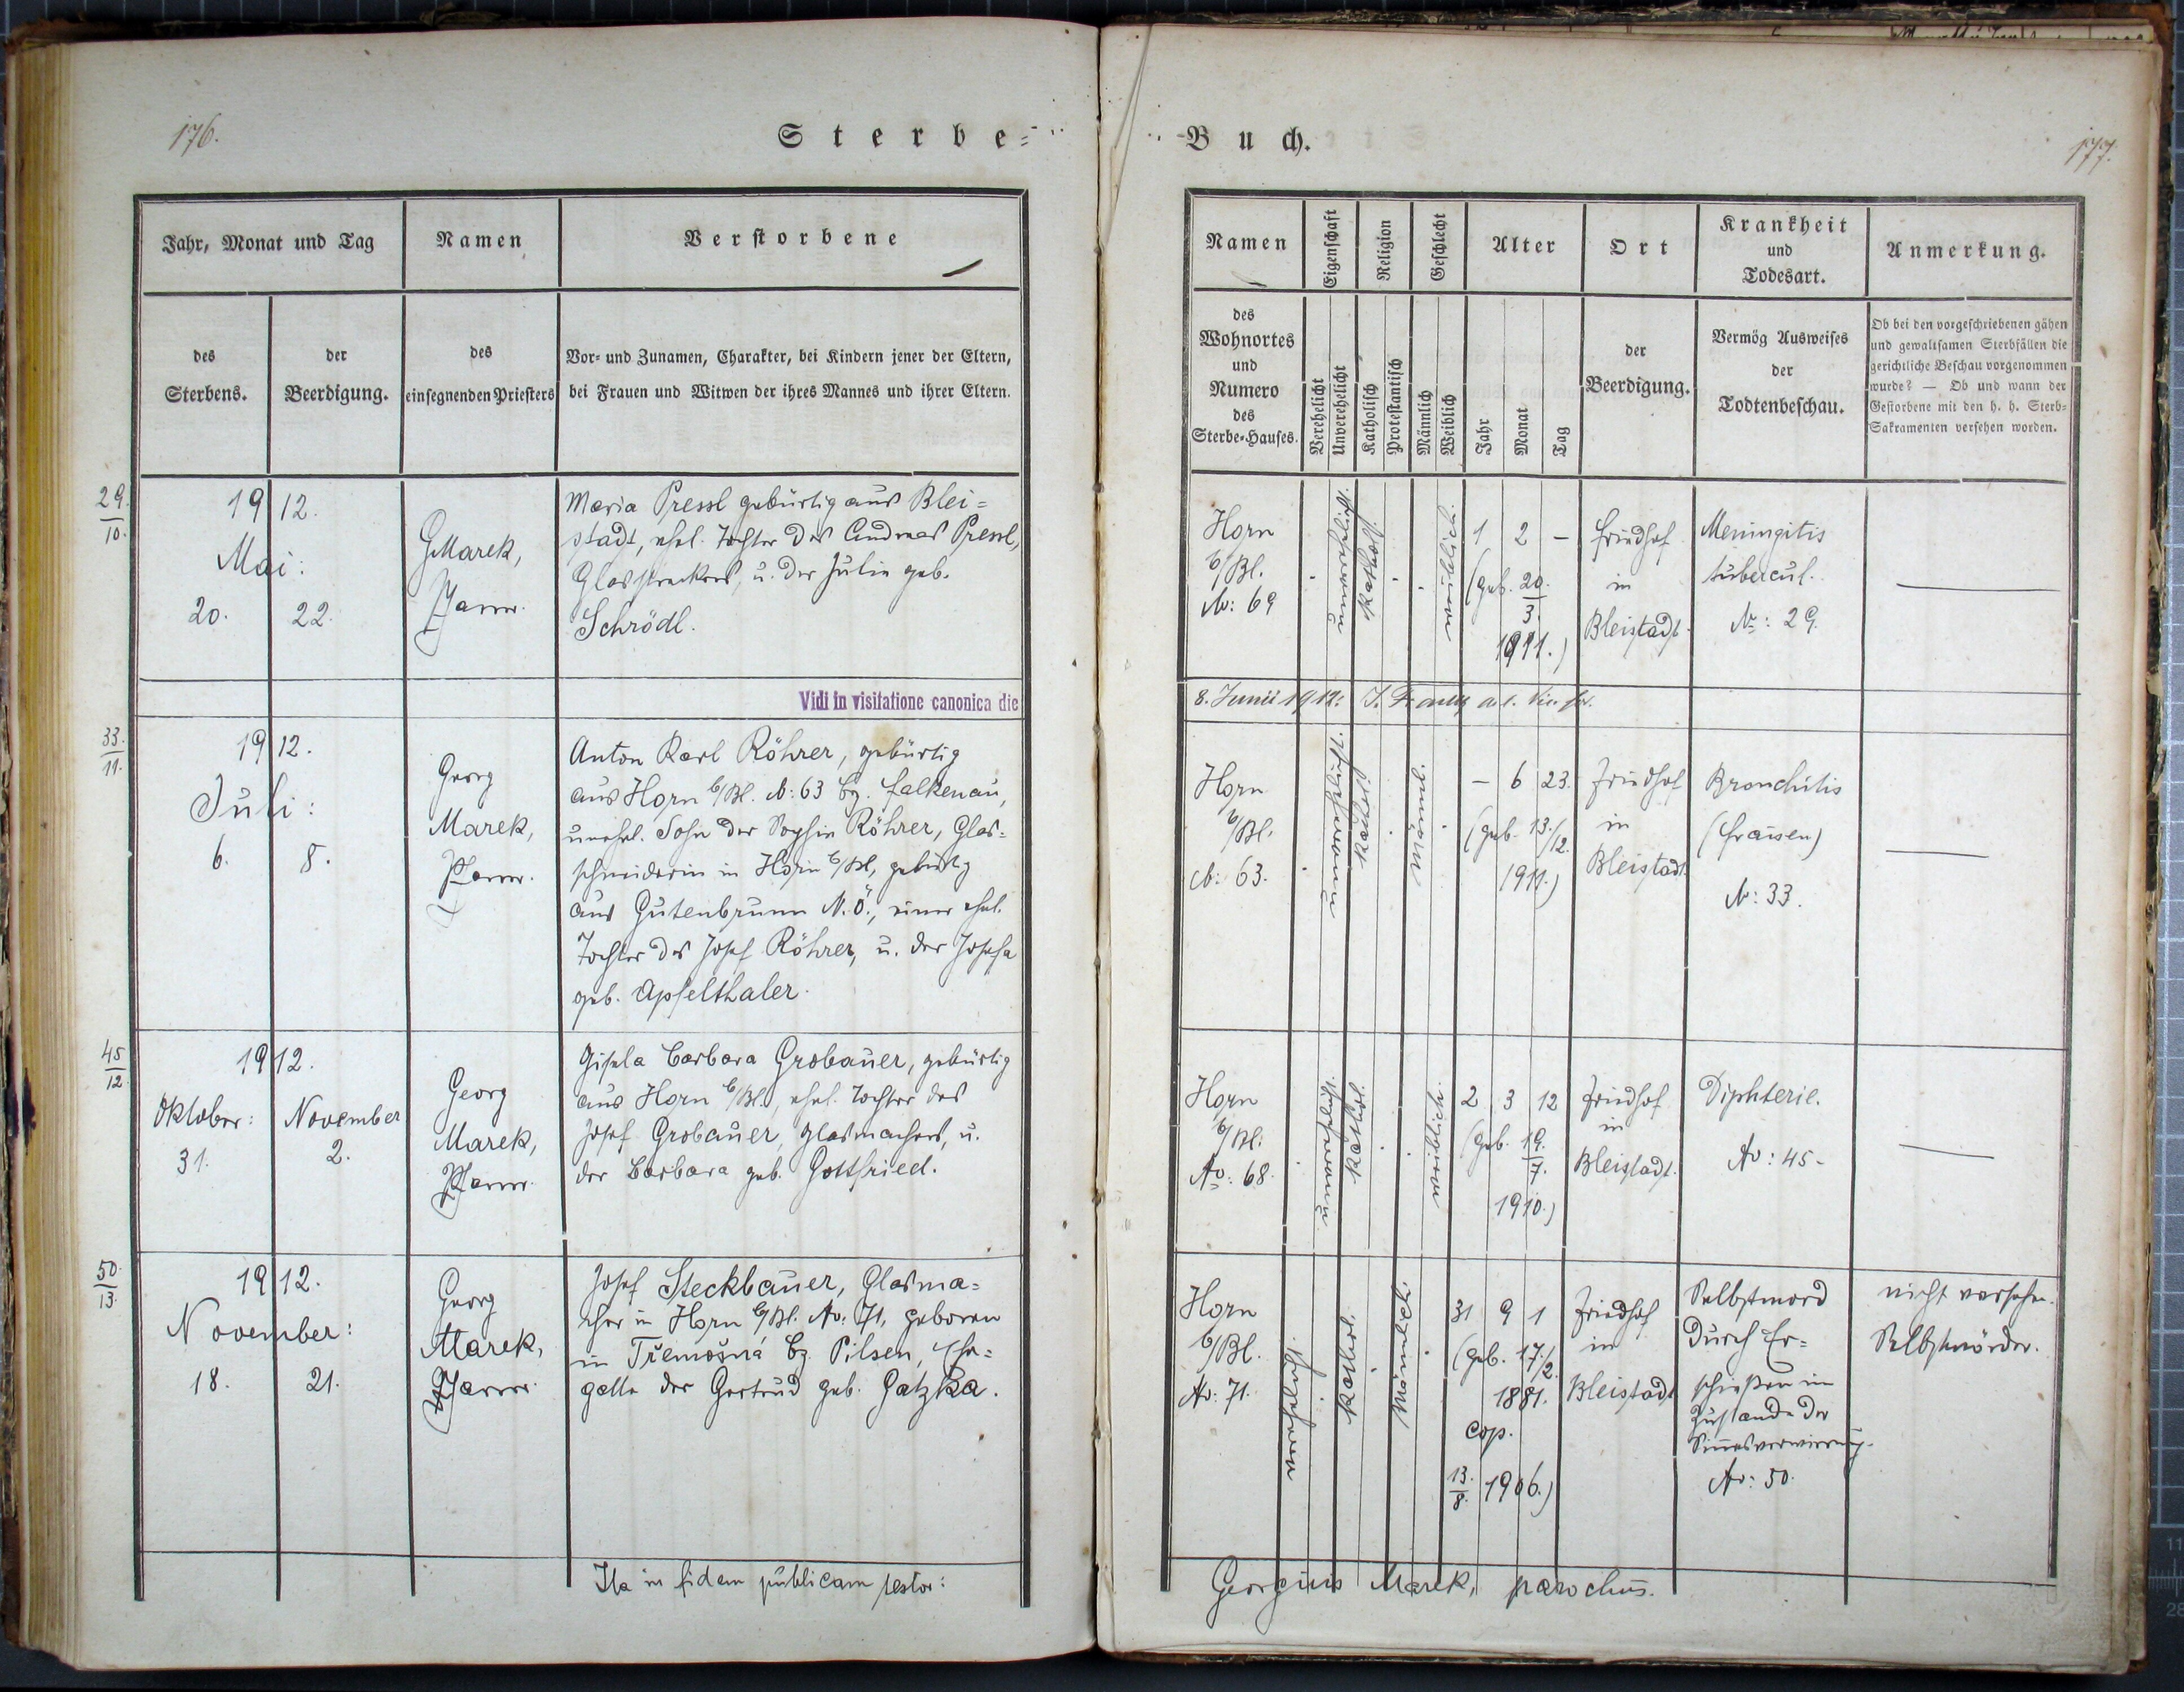 176.
Sterbe=
Jahr, Monat und Tag
Namen
Verstorbene
des
Sterbens.
der
Beerdigung.
des
einsegnenden Priesters
Vor- und Zunamen, Charakter, bei Kindern jener der Eltern,
bei Frauen und Witwen der ihres Mannes und ihrer Eltern.
29.
10.
1912.
Mai:
20.
22.
G Marek,
Pfarrer.
Maria Pressl gebürtig aus Blei=
stadt, ehel. Tochter des Andreas Pressl,
Glasstreckers, u. der Julie geb.
Schrödl.
Vidi in visitatione canonica die
33.
11.
1912.
Juli:
6.
8.
Georg
Marek,
Pfarrer.
Anton Karl Röhrer, gebürtig
aus Horn b/Bl. N: 63 Bz. Falkenau,
unehel. Sohn der Sophie Röhrer, Glas=
schneiderin in Horn b/Bl, gebürtig
aus Gutenbrunn N.Ö., einer ehel.
Tochter des Josef Röhrer, u. der Josefa
geb. Apfelthaler.
45
12.
1912.
Oktober:
November
31.
2.
Georg
Marek,
Pfarrer.
Gisela Barbara Grobauer, gebürtig
aus Horn b/Bl., ehel. Tochter des
Josef Grobauer, Glasmachers, u.
der Barbara geb. Gottfried.
50.
13.
1912.
November:
18.
21.
Georg
Marek,
Pfarrer.
Josef Steckbauer, Glasma=
cher in Horn b/Bl. No: 71, geboren
in Třemošná Bz. Pilsen, Ehe=
gatte der Gertrud geb. Gatzka.
Ita in fidem publicam testor:
-Buch.
177.
Namen
Eigenschaft
Religion
Geschlecht
Alter
Ort
Krankheit
und
Todesart.
Anmerkung.
des
Wohnortes
und
Numero
des
Sterbe-Hauses.
Verehelicht
Unverehelicht
Katholisch
Protestantisch
Männlich
Weiblich
Jahr
Monat
Tag
der
Beerdigung.
Vermög Ausweises
der
Todtenbeschau.
Ob bei den vorgeschriebenen gähen
und gewaltsamen Sterbfällen die
gerichtliche Beschau vorgenommen
wurde? — Ob und wann der
Gestorbene mit den h. h. Sterb-
Sakramenten versehen worden.
Horn
b/Bl.
No: 69
katholisch
weiblich.
1 2 –
(geb. 20.
3.
1911.)
Friedhof
in
Bleistadt.
Meningitis
tubercul.
No: 29.
—
8. Junii 1912.
Horn
b/Bl.
N: 63.
katholisch
männlich.
– 6 23.
(geb. 13./12.
1911.)
Friedhof
in
Bleistadt.
Bronchitis
(Fraisen)
N: 33.
—
Horn
b/Bl.
No: 68.
katholisch
weiblich.
2 3 12
(geb. 19.
7.
1910.)
Friedhof
in
Bleistadt.
Diphterie.
No: 45-
—
Horn
b/Bl.
No: 71.
katholisch
männlich.
31 9 1
(geb. 17./2.
1881.
cop.
13.
8. 1906.)
Friedhof
in
Bleistadt
Selbstmord
durch Er=
schießen im
Zustande der
Sinnesverwirrung.
No: 50.
nicht versehen.
Selbstmörder.
Georgius Marek, parochus.